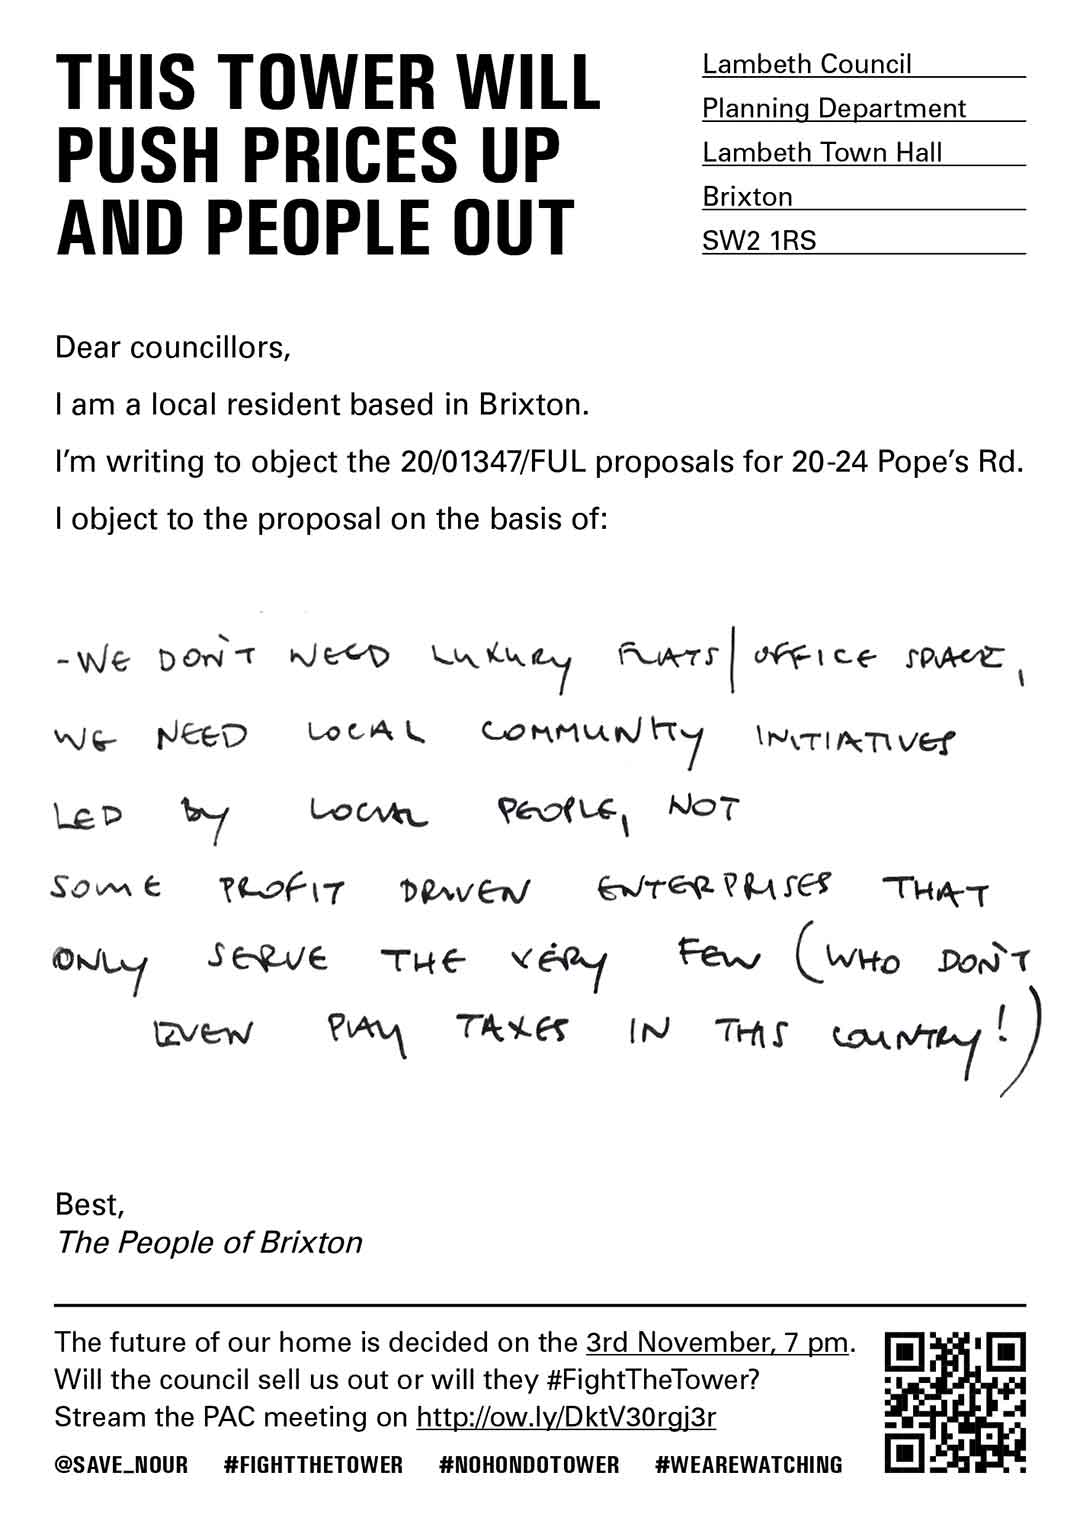 THIS TOWER WILL
PUSH PRICES UP
AND PEOPLE OUT
Lambeth Council
Planning Department
Lambeth Town Hall
Brixton
SW2 1RS
Dear councillors,
I am a local resident based in Brixton.
I'm writing to object the 20/01347/FUL proposals for 20-24 Pope's Rd.
I object to the proposal on the basis of:
- WE DON'T NEED LUXURY FLATS/OFFICE SPACE,
WE NEED LOCAL COMMUNITY INITIATIVES
LED BY LOCAL PEOPLE, NOT
SOME PROFIT DRIVEN ENTERPRISES THAT
ONLY SERVE THE VERY FEW (WHO DON'T
EVEN PAY TAXES IN THIS COUNTRY!)
Best,
The People of Brixton
The future of our home is decided on the 3rd November, 7 pm.
Will the council sell us out or will they #FightTheTower?
Stream the PAC meeting on http://ow.ly/DktV30rgj3r
@SAVE_NOUR #FIGHTTHETOWER #NOHONDOTOWER #WEAREWATCHING